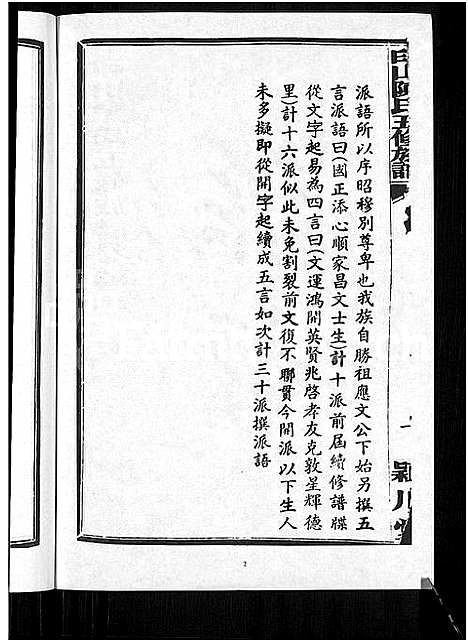 派語所以序昭穆別尊卑也我族自勝祖應文公下始另撰五
言派語曰(國正添心順家昌文士生)計十派前屆續修譜牒
從文字起易為四言曰(文運鴻開英賢兆啓孝友克敦星輝德
里)計十六派似此未免割裂前文復不聯貫今開派以下生人
未多擬即從開字起續成五言如次計三十派撰派語
氏五修族譜
一
潁川堂